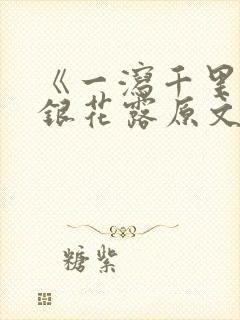 《一泻千里
银花露原文
糖紫